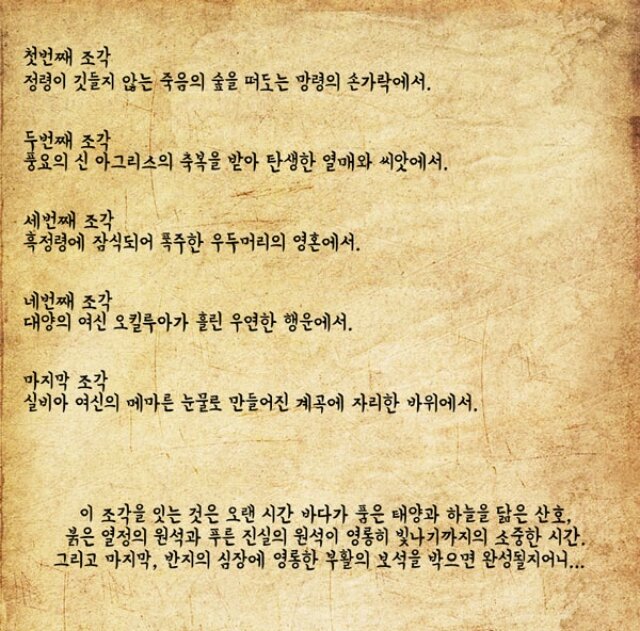 첫번째 조각
정령이 깃들지 않는 죽음의 숲을 떠도는 망령의 손가락에서.
두번째 조각
풍요의 신 아그리스의 축복을 받아 탄생한 열매와 씨앗에서.
세번째 조각
흑정령에 잠식되어 폭주한 우두머리의 영혼에서.
네번째 조각
대양의 여신 오킬루아가 흘린 우연한 행운에서.
마지막 조각
실비아 여신의 메마른 눈물로 만들어진 계곡에 자리한 바위에서.
이 조각을 잇는 것은 오랜 시간 바다가 품은 태양과 하늘을 닮은 산호,
붉은 열정의 원석과 푸른 진실의 원석이 영롱히 빛나기까지의 소중한 시간.
그리고 마지막, 반지의 심장에 영롱한 부활의 보석을 박으면 완성될지어니...